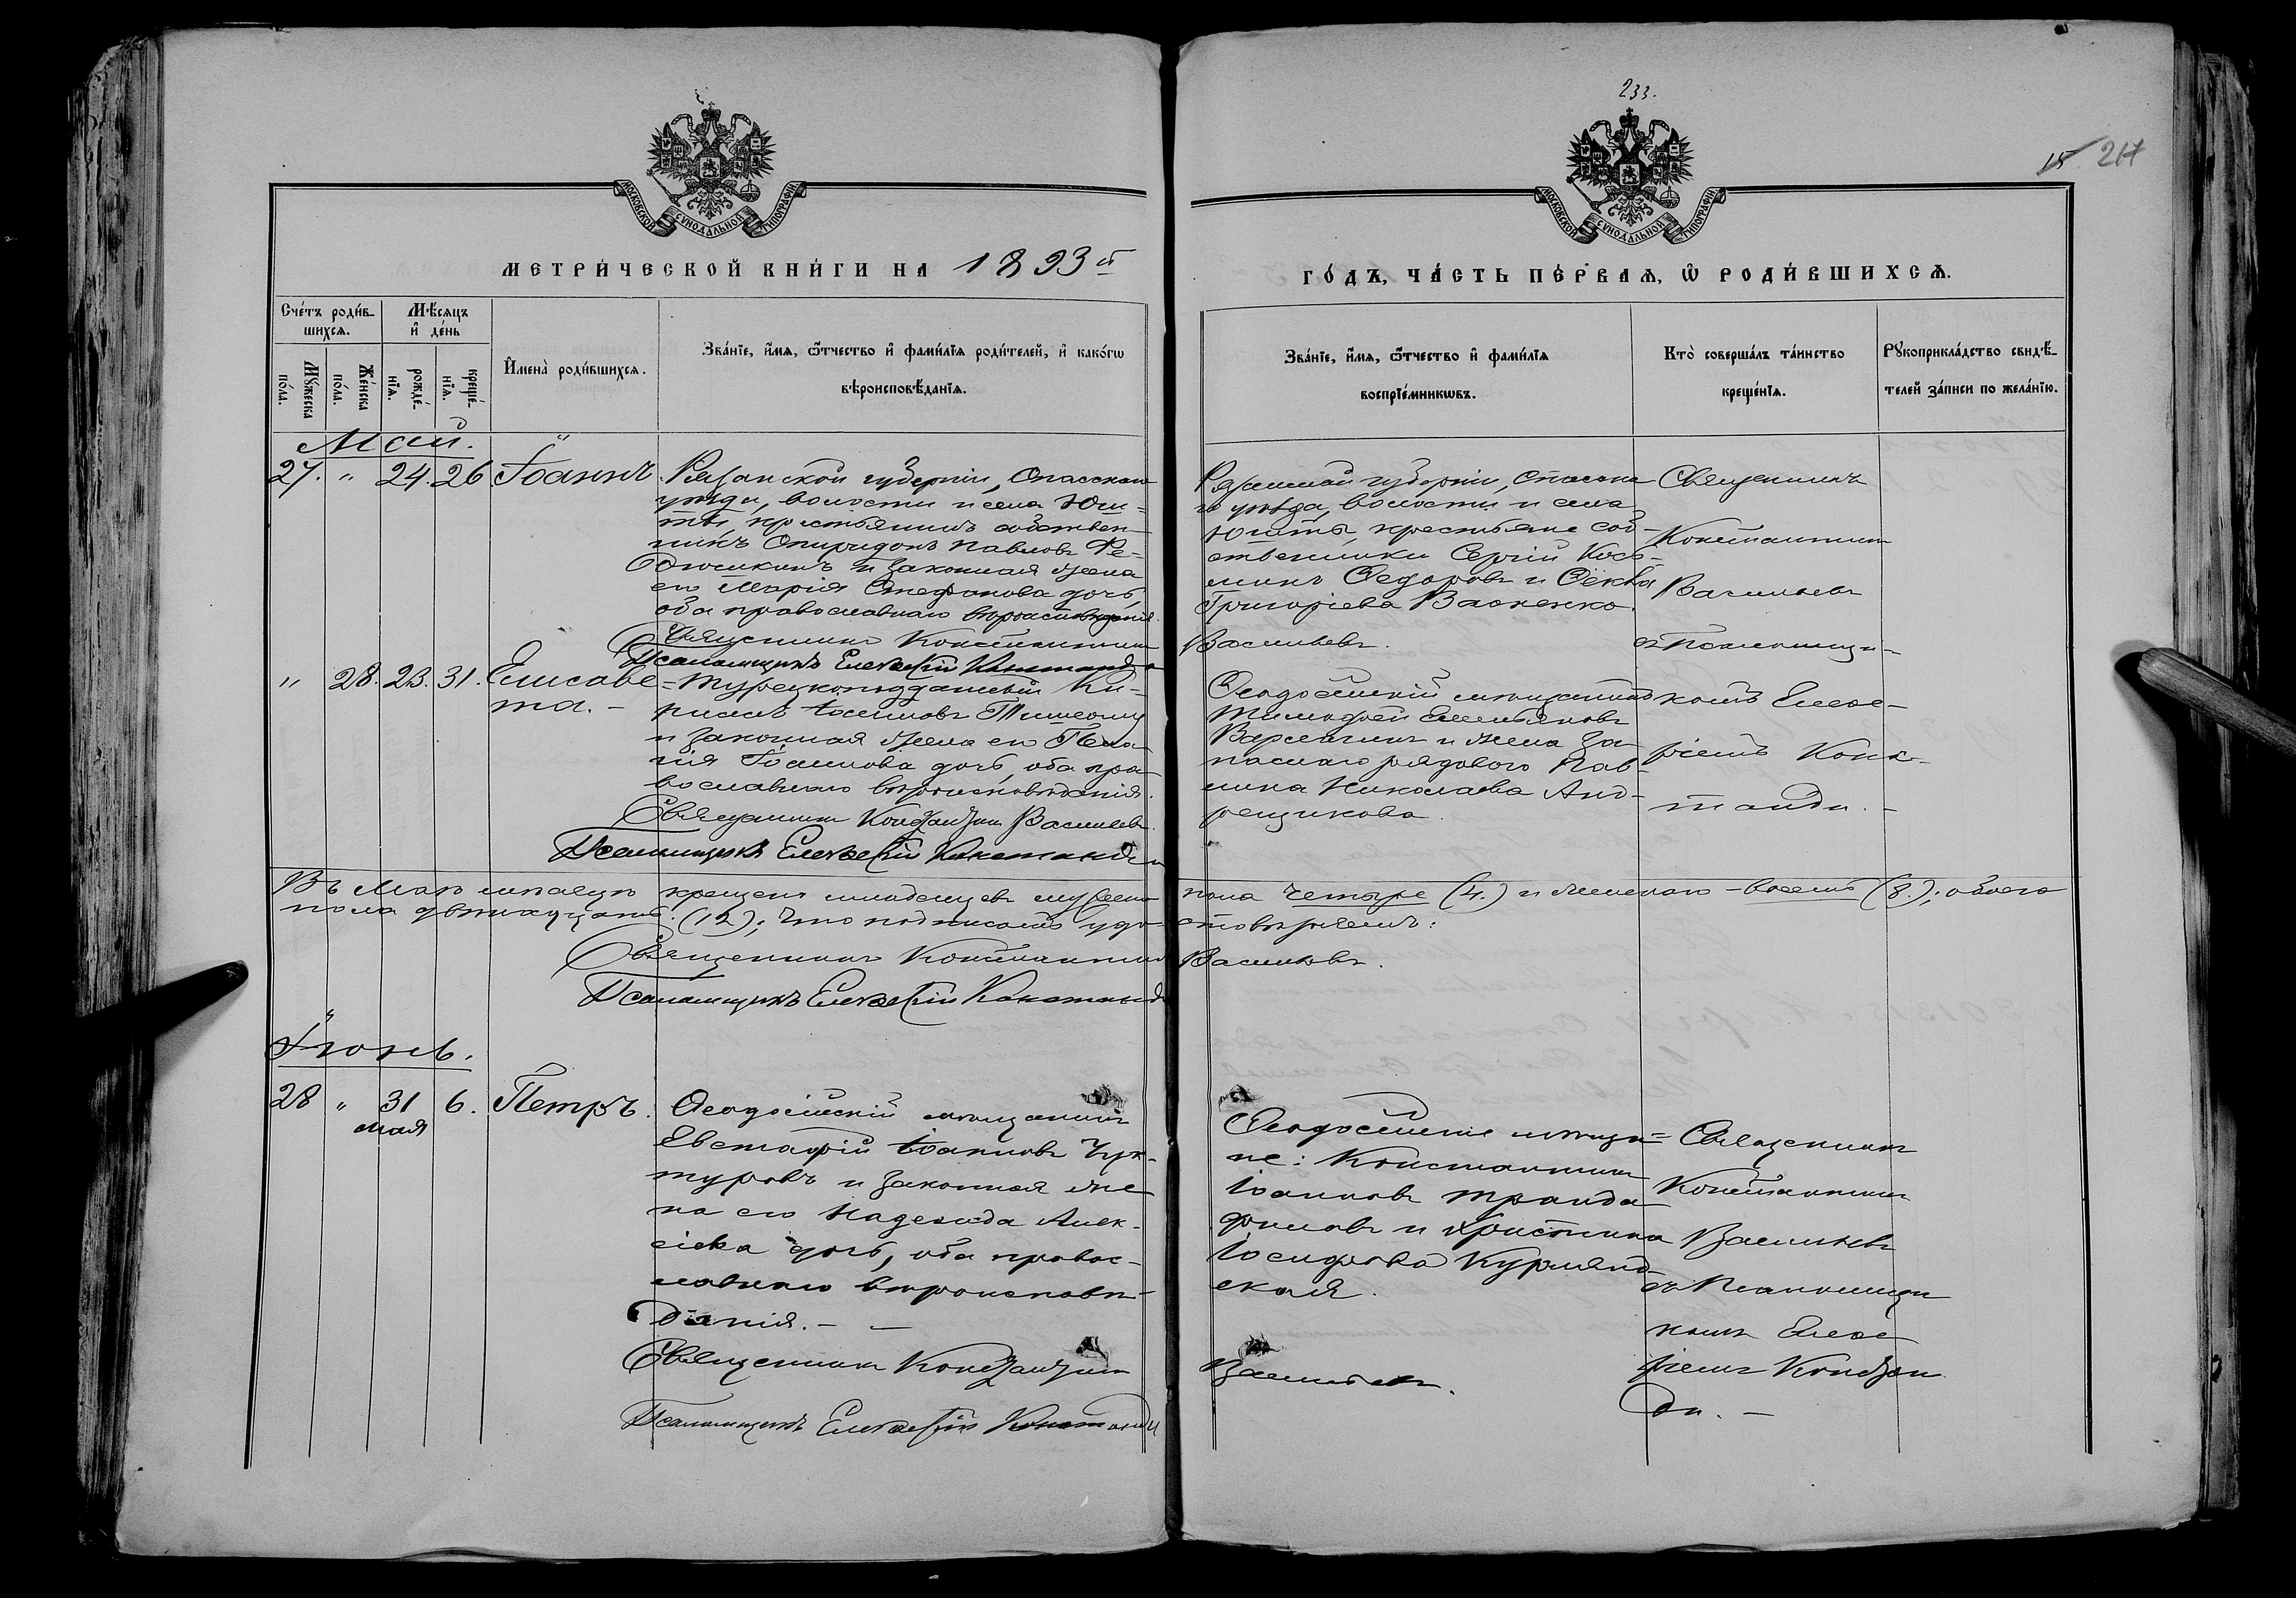 233.
15. 217
МОСКОВСКОЙ СѴНОДАЛЬНОЙ ТИПОГРАФІИ
МОСКОВСКОЙ СѴНОДАЛЬНОЙ ТИПОГРАФІИ
МЕТРИ́ЧЕСКОЙ КНИ́ГИ НА 1893й
ГО́ДЪ, ЧА́СТЬ ПЕ́РВАѦ, Ѡ҆ РОДИ́ВШИХСѦ.
Сче́тъ роди́в-
шихсѧ.
Мѣ́сѧцъ
и҆ де́нь
Мꙋ́жеска
по́ла.
Же́нска
по́ла.
рожде́-
нїѧ.
креще́-
нїѧ.
И҆мена̀ роди́вшихсѧ.
Зва́нїе, и҆́мѧ, ѻ҆́тчество и҆ фами́лїѧ роди́телей, и҆ како́гѡ
вѣроисповѣ́данїѧ.
Зва́нїе, и҆́мѧ, ѻ҆́тчество и҆ фами́лїѧ
воспрїе́мникѡвъ.
Кто̀ соверша́лъ та́инство
креще́нїѧ.
Рꙋкоприкла́дство свидѣ́-
телей за́писи по жела́нїю.
Май.
27. " 24. 26 Іоаннъ.
Рязанской губерніи, Спасскаго
уѣзда, волости и села Иж-
крестьянинъ собствен-
никъ Спиридонъ Павловъ Ре-
и законная жена
его Марія Стефанова дочь,
оба православнаго вѣроисповѣданія.
Священникъ Константинъ
Васильевъ.
Псаломщикъ Елевферій Константа
Рязанской губерніи, Спасска-
го уѣзда, волости и села
крестьяне соб-
ственники Сергій Кось-
минъ Федоровъ и Фекла
Григоріева Васкенко.
Священникъ
Константинъ
Васильевъ
съ Псаломщи-
комъ Елеве-
ріемъ Конс-
танди. -
" 28. 23. 31. Елисаве-
та. -
Турецкоподданный Ки-
и законная жена его Пела-
гія Іоаннова дочь, оба пра-
вославнаго вѣроисповѣданія.
Священникъ Константинъ Васильевъ.
Псаломщикъ Елевферій Константи
Ѳеодосійскій мѣщанинъ
Тимофей Емельяновъ
и жена за-
паснаго рядового Пав-
лина Николаева Анд-
рещикова.
Въ Маѣ мѣсяцѣ крещено младенцевъ мужеска пола четыре (4.) и женскаго - восемь (8.); обоего
пола двѣнадцать (12); что подписомъ удостовѣряемъ:
Священникъ Константинъ Васильевъ.
Псаломщикъ Елевферій Константи
Іюнь.
28 " 31 6. Петръ.
мая
Ѳеодосійскій мѣщанинъ
Евстафій Іоанновъ Чук-
туровъ и законная же-
на его Надежда Алек-
сіева дочь, оба правос-
лавнаго вѣроисповѣ-
данія. - -
Священникъ Константинъ
Васильевъ.
Псаломщикъ Елевферій Константи
Ѳеодосійскіе мѣща-
не: Константинъ
Іоанновъ Транда-
филовъ и Христина
Іосифова Курлянд-
ская.
Священникъ
Константинъ
Васильевъ
съ Псаломщи
комъ Елеве
ріемъ Констан
ди. -